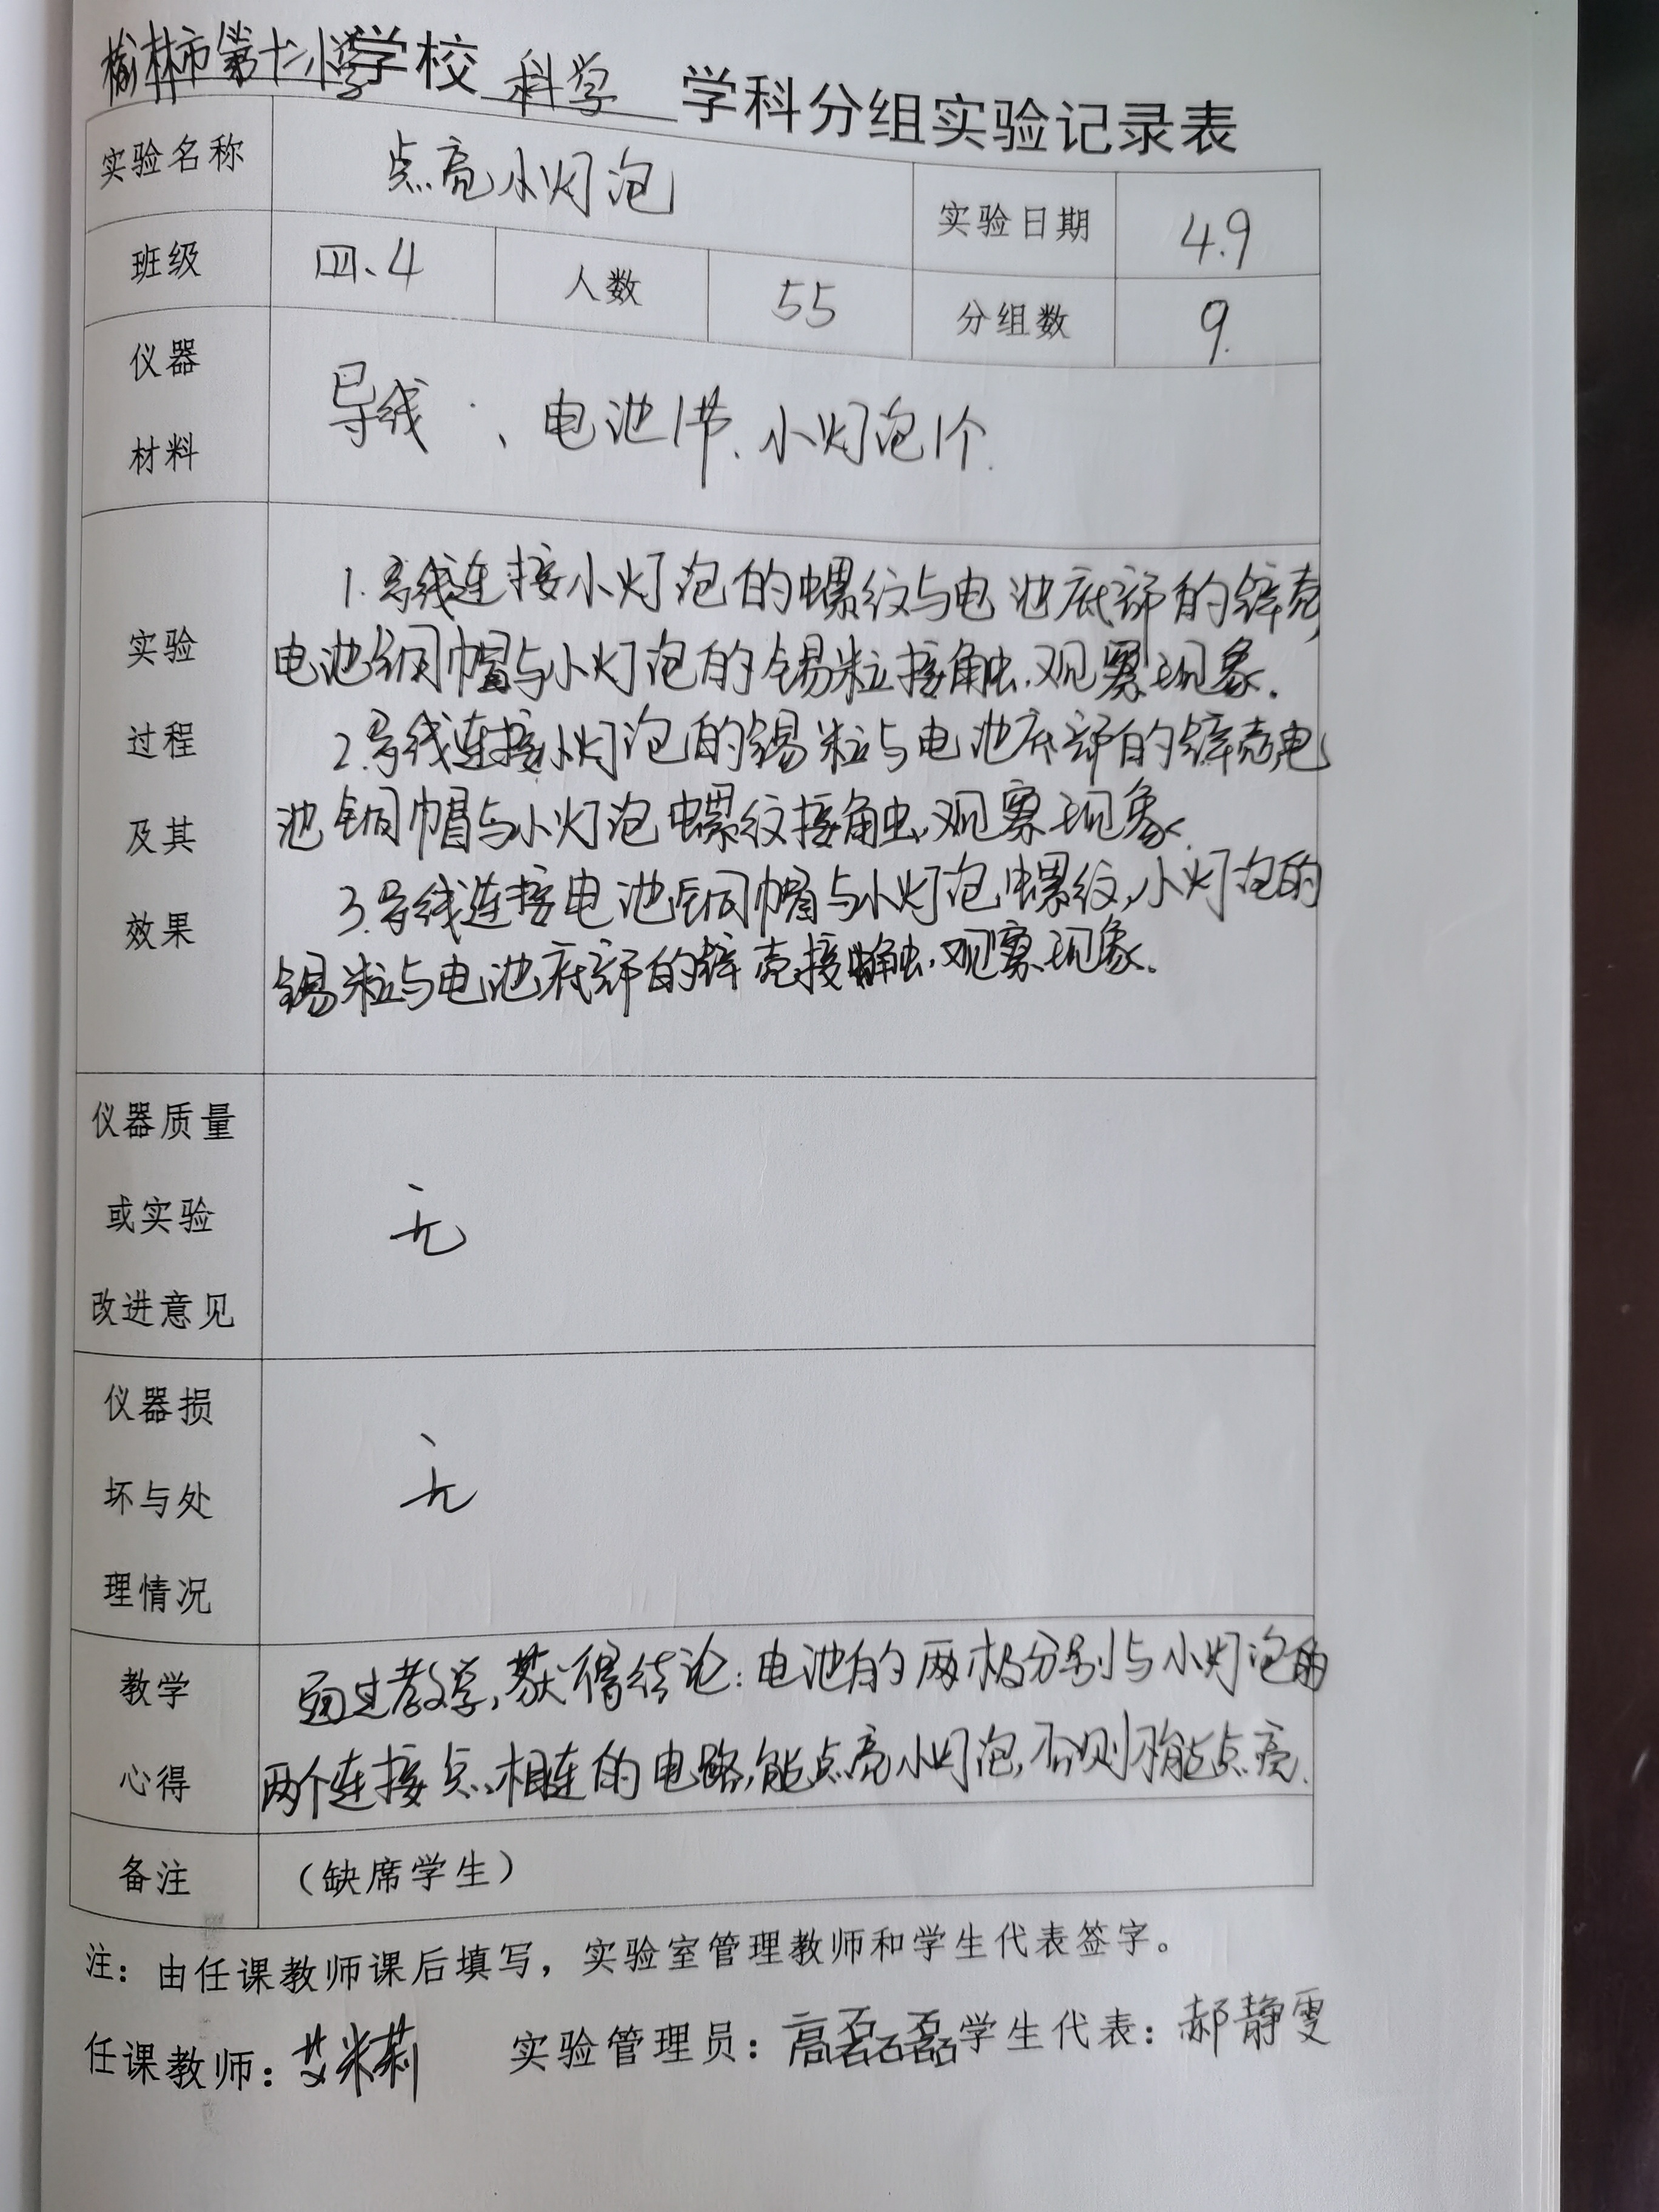 榆林市第十二小学学校 科学 学科分组实验记录表
实验名称 点亮小灯泡 实验日期 4.9
班级 四、4 人数 55 分组数 9.
仪器材料 导线、电池1节、小灯泡1个.
实验过程及其效果
1.导线连接小灯泡的螺纹与电池底部的锌壳,
电池铜帽与小灯泡的锡粒接触,观察现象.
2.导线连接小灯泡的锡粒与电池底部的锌壳,电
池铜帽与小灯泡螺纹接触,观察现象.
3.导线连接电池铜帽与小灯泡螺纹,小灯泡的
锡粒与电池底部的锌壳接触,观察现象。
仪器质量或实验改进意见 无
仪器损坏与处理情况 无
教学心得
通过教学,获得结论:电池的两极分别与小灯泡的
两个连接点相连的电路,能点亮小灯泡,否则不能点亮.
备注 (缺席学生)
注:由任课教师课后填写,实验室管理教师和学生代表签字。
任课教师:艾米莉 实验管理员:高磊磊 学生代表:郝静雯